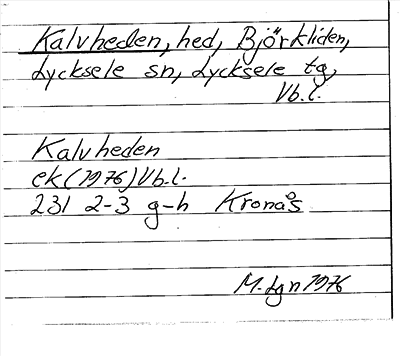 Kalvheden, hed, Björkliden,
Lycksele sn, Lycksele tg,
Vb.l.
Kalvheden
ek (1976) Vb.l.
231 2-3 g-h Kronås
M. Lgn 1976